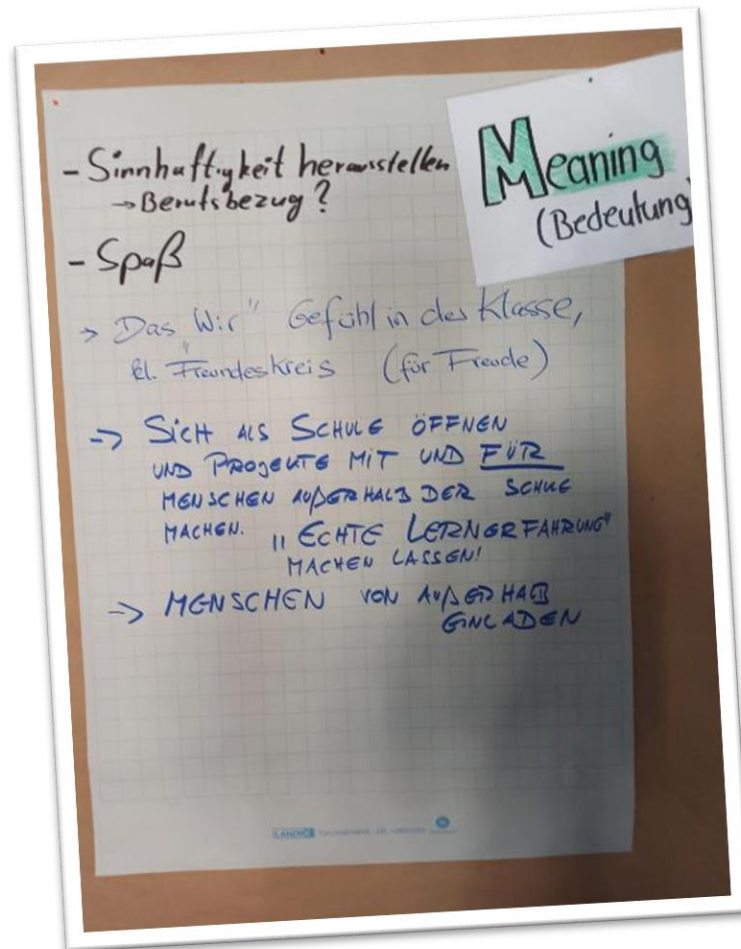 Meaning
(Bedeutung)
- Sinnhaftigkeit herausstellen
→ Berufsbezug?
- Spaß
→ Das „Wir" Gefühl in der Klasse,
kl. Freundeskreis (für Freude)
→ SICH ALS SCHULE ÖFFNEN
UND PROJEKTE MIT UND FÜR
MENSCHEN AUßERHALB DER SCHULE
MACHEN. „ECHTE LERNERFAHRUNG"
MACHEN LASSEN!
→ MENSCHEN VON AUßERHALB
EINLADEN
LANDRÉ